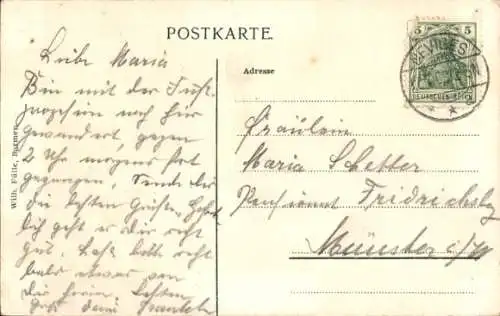 POSTKARTE.
Liebe Maria
Bin mit der Fuß-
prozession noch hier
gewandert, gegen
2 Uhr morgens fort
gegangen, Sende dir
die besten Grüße. Hoffent
lich geht es dir recht
gut. Laß bitte recht
bald etwas von
dir hören. Besten
Gruß deine
Wilh. Fülle, Barmen
Adresse
5 5
NEVIGES
DEUTSCHES REICH
Fräulein
Maria Schetter
Pensionat Fridrichsbg
Münster i/W